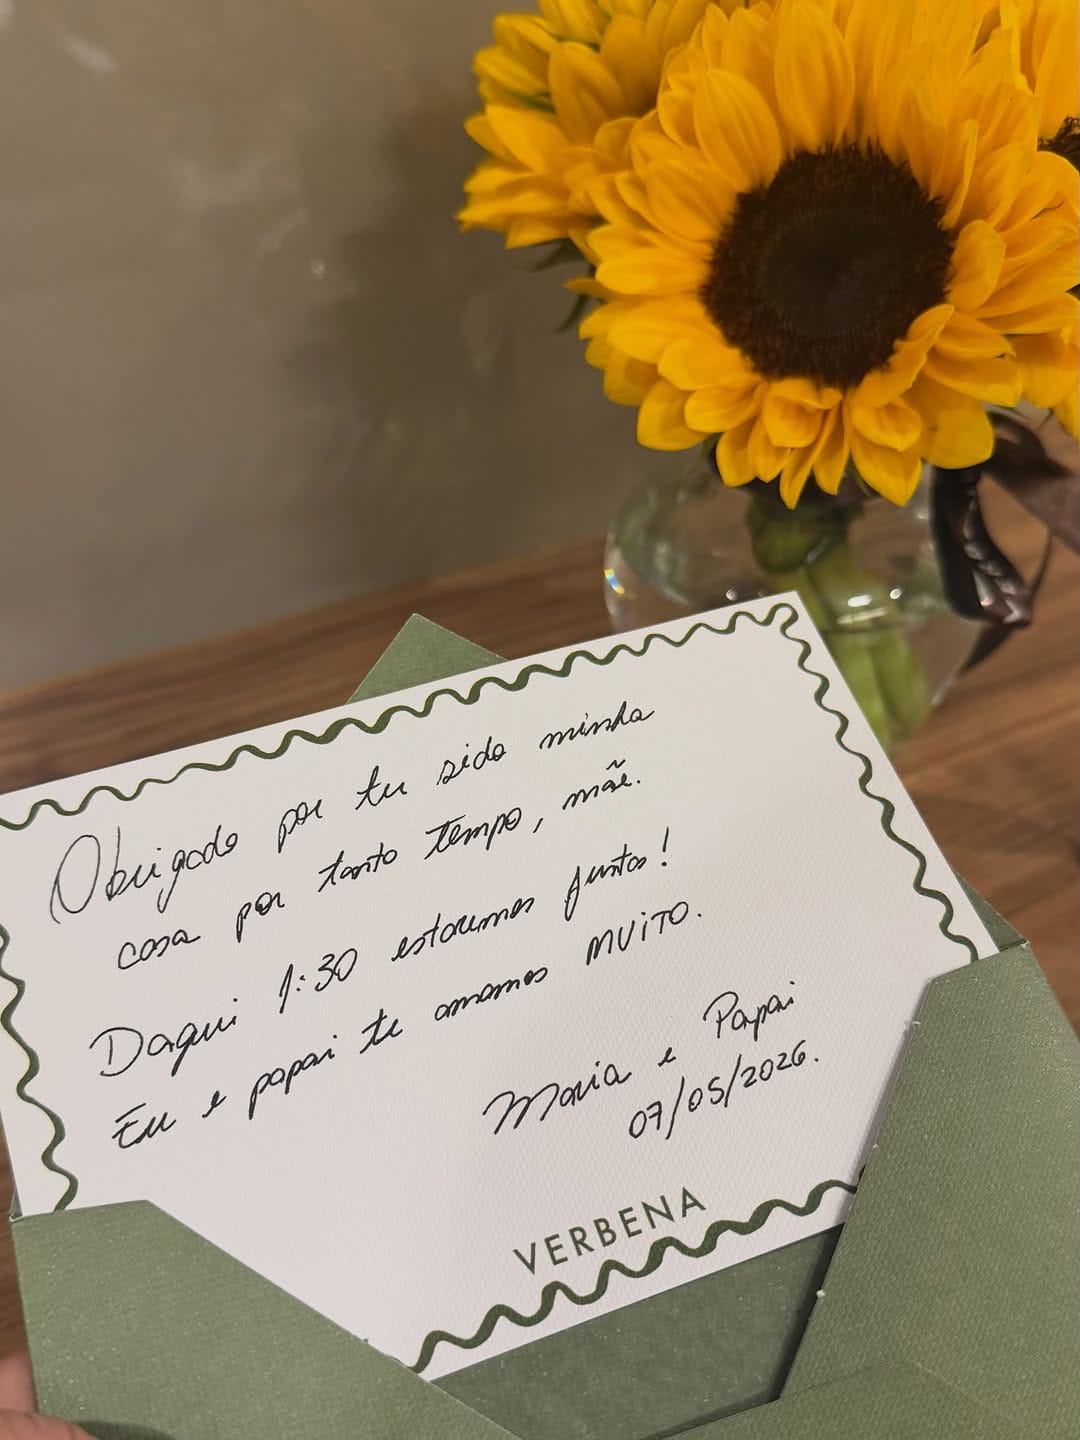 Obrigado por tu sido minha
casa por tanto tempo, mãe.
Daqui 1:30 estaremos juntos!
Eu e papai te amamos MUITO.
Maria e Papai
07/05/2026.
VERBENA